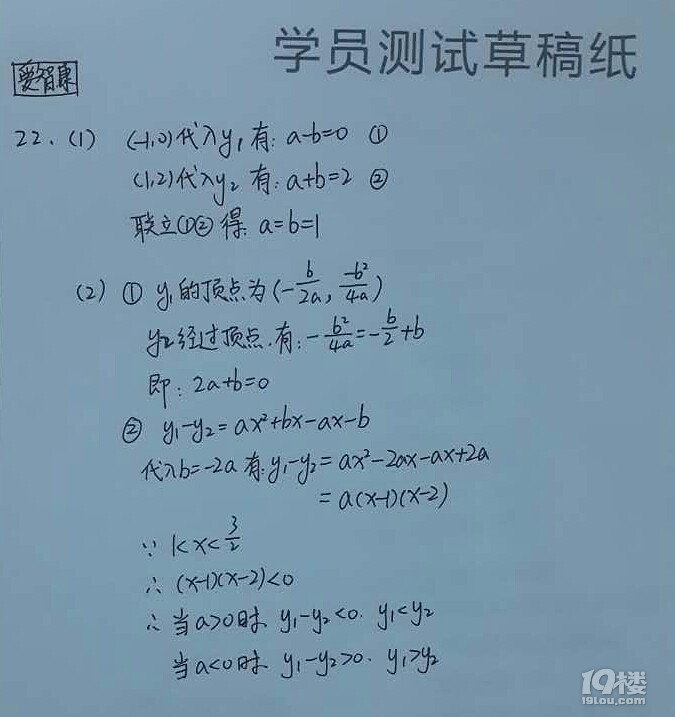 学员测试草稿纸
爱智康
22. (1) (-1,0)代入y₁有: a-b=0 ①
(1,2)代入y₂ 有: a+b=2 ②
联立①②得: a=b=1
(2) ① y₁的顶点为(-b/2a, -b²/4a)
y₂经过顶点.有: -b²/4a=-b/2+b
即: 2a+b=0
② y₁-y₂=ax²+bx-ax-b
代入b=-2a有: y₁-y₂=ax²-2ax-ax+2a
=a(x-1)(x-2)
∵ 1<x<3/2
∴ (x-1)(x-2)<0
∴ 当a>0时. y₁-y₂<0. y₁<y₂
当a<0时. y₁-y₂>0. y₁>y₂
19楼
19lou.com